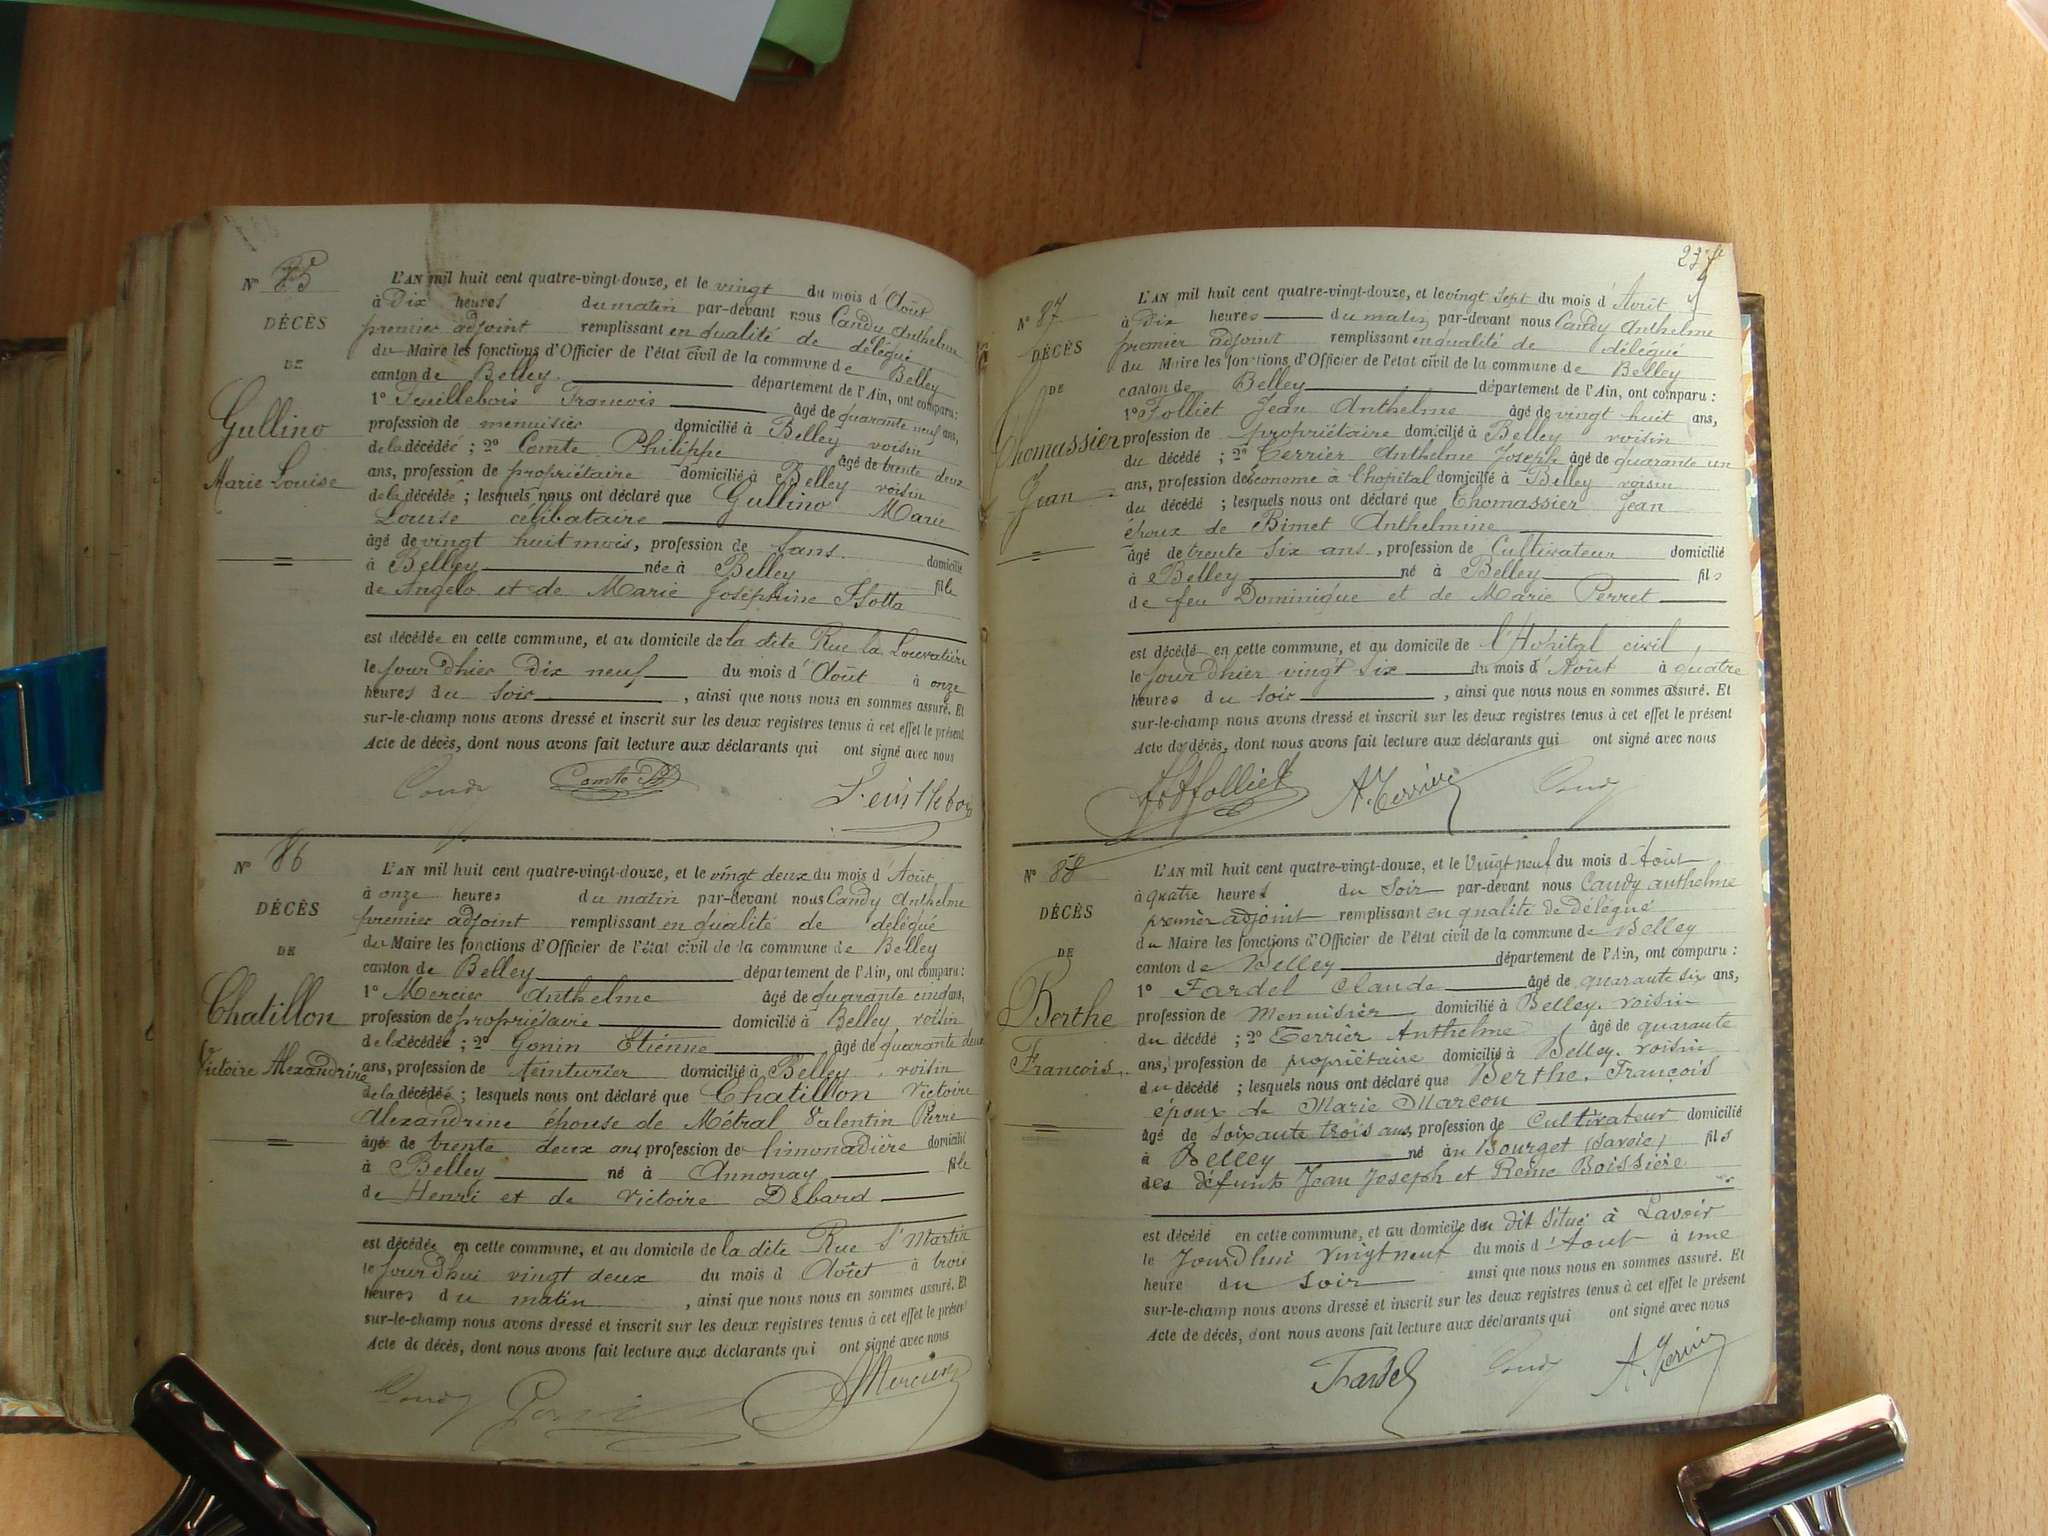 Nº 85
DÉCÈS
DE
Gullino
Marie Louise
L'AN mil huit cent quatre-vingt-douze, et le vingt du mois d'Août
à Dix heures du matin par-devant nous Candy Anthelme
premier adjoint remplissant en qualité de délégué
du Maire les fonctions d'Officier de l'état civil de la commune de Belley
canton de Belley département de l'Ain, ont comparu :
1º Feuillebois Francois âgé de quarante neuf ans,
profession de menuisier domicilié à Belley voisin
de la décédée ; 2º Comte Philippe âgé de trente deux
ans, profession de propriétaire domicilié à Belley voisin
de la décédée ; lesquels nous ont déclaré que Gullino Marie
Louise célibataire
âgé de vingt huit mois, profession de sans domicilié
à Belley née à Belley fille
de Angelo et de Marie Joséphine
est décédée en cette commune, et au domicile de la dite Rue la
le jour d'hier dix neuf du mois d'Août à onze
heures du soir , ainsi que nous nous en sommes assuré. Et
sur-le-champ nous avons dressé et inscrit sur les deux registres tenus à cet effet le présent
Acte de décès, dont nous avons fait lecture aux déclarants qui ont signé avec nous
Candy Comte Ph Feuillebois
Nº 86
DÉCÈS
DE
Chatillon
Victoire Alexandrine
L'AN mil huit cent quatre-vingt-douze, et le vingt deux du mois d'Août
à onze heures du matin par-devant nous Candy Anthelme
premier adjoint remplissant en qualité de délégué
du Maire les fonctions d'Officier de l'état civil de la commune de Belley
canton de Belley département de l'Ain, ont comparu :
1º Mercier Anthelme âgé de quarante cinq ans,
profession de propriétaire domicilié à Belley voisin
de la décédée ; 2º Gonin Etienne âgé de quarante deux
ans, profession de teinturier domicilié à Belley voisin
de la décédée ; lesquels nous ont déclaré que Chatillon Victoire
Alexandrine épouse de Métral Valentin Pierre
âgé de trente deux ans profession de limonadière domicilié
à Belley né à Annonay fille
de Henri et de Victoire Debard
est décédée en cette commune, et au domicile de la dite Rue St Martin
le jourd'hui vingt deux du mois d'Août à trois
heures du matin , ainsi que nous nous en sommes assuré. Et
sur-le-champ nous avons dressé et inscrit sur les deux registres tenus à cet effet le présent
Acte de décès, dont nous avons fait lecture aux déclarants qui ont signé avec nous
Candy Gonin Mercier
Nº 87
DÉCÈS
DE
Thomassier
Jean
L'AN mil huit cent quatre-vingt-douze, et le vingt sept du mois d'Août
à dix heures du matin par-devant nous Candy Anthelme
premier adjoint remplissant en qualité de délégué
du Maire les fonctions d'Officier de l'état civil de la commune de Belley
canton de Belley département de l'Ain, ont comparu :
1º Folliet Jean Anthelme âgé de vingt huit ans,
profession de propriétaire domicilié à Belley voisin
du décédé ; 2º Terrier Anthelme Joseph âgé de quarante un
ans, profession d'économe à l'hopital domicilié à Belley voisin
du décédé ; lesquels nous ont déclaré que Thomassier Jean
époux de Bimet Anthelmine
âgé de trente six ans, profession de Cultivateur domicilié
à Belley né à Belley fils
de feu Dominique et de Marie Perret
est décédé en cette commune, et au domicile de l'Hopital civil
le jour d'hier vingt six du mois d'Août à quatre
heures du soir , ainsi que nous nous en sommes assuré. Et
sur-le-champ nous avons dressé et inscrit sur les deux registres tenus à cet effet le présent
Acte de décès, dont nous avons fait lecture aux déclarants qui ont signé avec nous
Folliet A. Terrier Candy
Nº 88
DÉCÈS
DE
Berthe
Francois
L'AN mil huit cent quatre-vingt-douze, et le Vingt neuf du mois d'Août
à quatre heures du Soir par-devant nous Candy anthelme
premier adjoint remplissant en qualité de délégué
du Maire les fonctions d'Officier de l'état civil de la commune de Belley
canton de Belley département de l'Ain, ont comparu :
1º Fardel Claude âgé de quarante six ans,
profession de Menuisier domicilié à Belley. voisin
du décédé ; 2º Terrier Anthelme âgé de quarante
ans, profession de propriétaire domicilié à Belley. voisin
du décédé ; lesquels nous ont déclaré que Berthe. François
époux de Marie Marcou
âgé de soixante trois ans, profession de Cultivateur domicilié
à Belley né au Bourget (Savoie) fils
des défunts Jean Joseph et Reine Boissière
est décédé en cette commune, et au domicile du dit situé à Lavoir
le Jourd'hui vingt neuf du mois d'Août à une
heure du soir ainsi que nous nous en sommes assuré. Et
sur-le-champ nous avons dressé et inscrit sur les deux registres tenus à cet effet le présent
Acte de décès, dont nous avons fait lecture aux déclarants qui ont signé avec nous
Fardel Candy A. Terrier